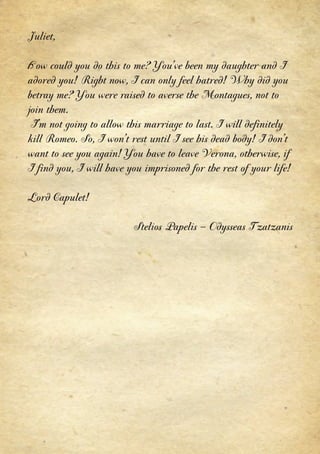 Juliet,
How could you do this to me? You've been my daughter and I
adored you! Right now, I can only feel hatred! Why did you
betray me? You were raised to averse the Montagues, not to
join them.
I'm not going to allow this marriage to last. I will definitely
kill Romeo. So, I won't rest until I see his dead body! I don't
want to see you again! You have to leave Verona, otherwise, if
I find you, I will have you imprisoned for the rest of your life!
Lord Capulet!
Stelios Papelis – Odysseas Tzatzanis